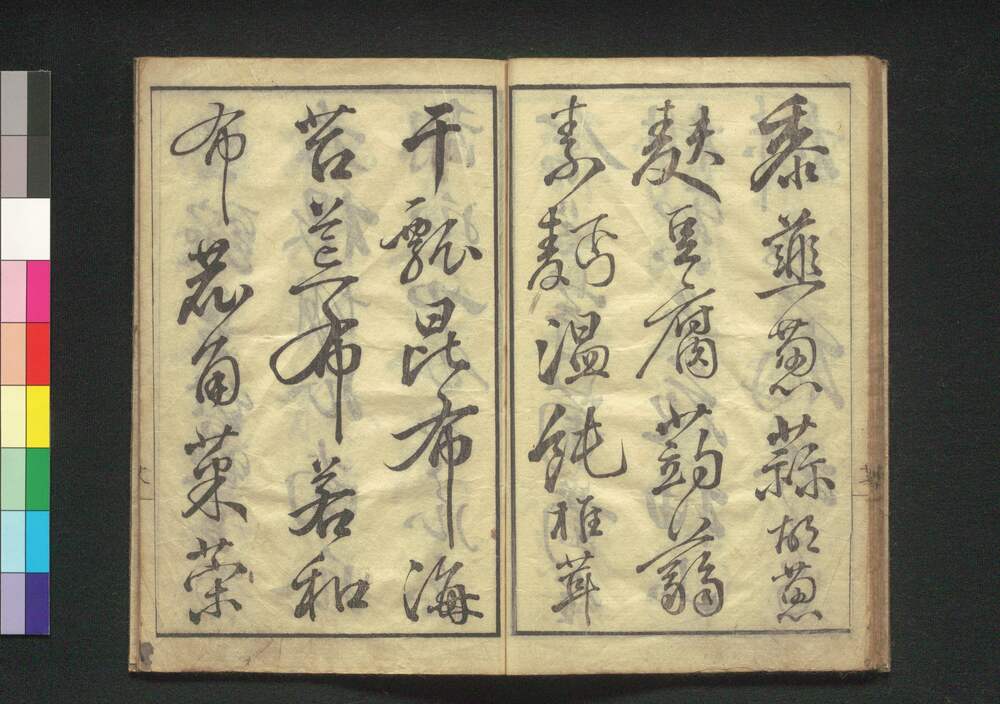 黍薤葱蒜胡葱
麸豆腐蒟蒻
素麺温飩椎茸
干瓢昆布海
苔荒布若和
布鹿角菜栄